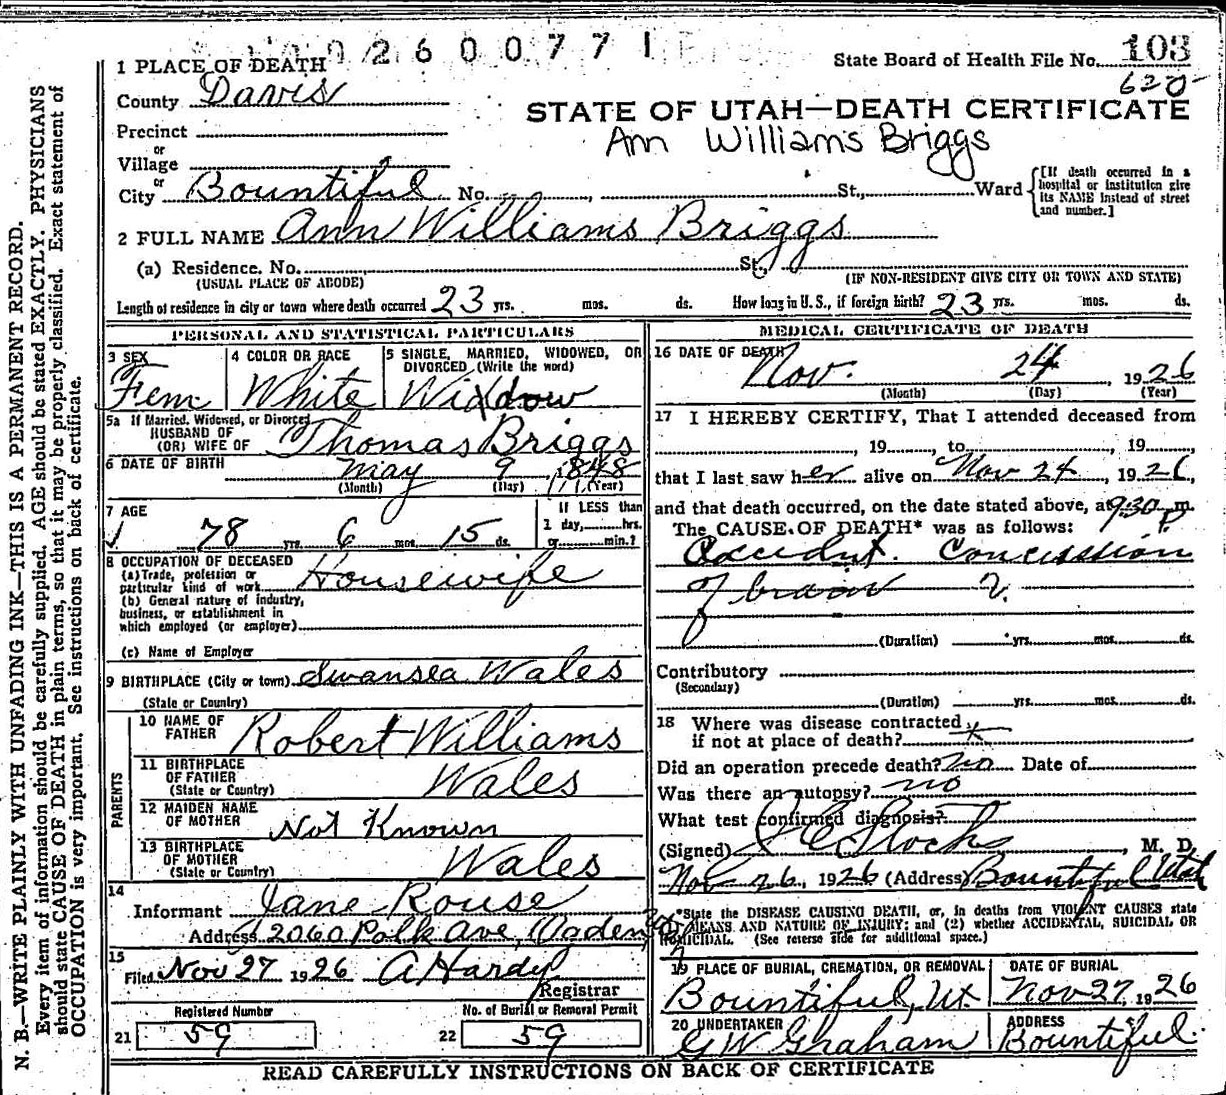 260077 1
State Board of Health File No. 103
620
1 PLACE OF DEATH
County Davis
STATE OF UTAH—DEATH CERTIFICATE
Precinct
Ann Williams Briggs
or
Village
or
City Bountiful No. , St., Ward
[If death occurred in a
hospital or institution give
its NAME instead of street
and number.]
2 FULL NAME Ann Williams Briggs
(a) Residence. No. St.,
(USUAL PLACE OF ABODE) (IF NON-RESIDENT GIVE CITY OR TOWN AND STATE)
Length of residence in city or town where death occurred 23 yrs. mos. ds. How long in U. S., if foreign birth? 23 yrs. mos. ds.
PERSONAL AND STATISTICAL PARTICULARS
3 SEX
Fem
4 COLOR OR RACE
White
5 SINGLE, MARRIED, WIDOWED, OR
DIVORCED (Write the word)
Widow
5a If Married, Widowed, or Divorced
HUSBAND OF
(OR) WIFE OF Thomas Briggs
6 DATE OF BIRTH May 9 1848
(Month) (Day) (Year)
7 AGE
78 yrs. 6 mos. 15 ds.
If LESS than
1 day, hrs.
or min.?
8 OCCUPATION OF DECEASED
(a) Trade, profession or
particular kind of work Housewife
(b) General nature of industry,
business, or establishment in
which employed (or employer)
(c) Name of Employer
9 BIRTHPLACE (City or town) Swansea Wales
(State or Country)
PARENTS
10 NAME OF
FATHER Robert Williams
11 BIRTHPLACE
OF FATHER
(State or Country) Wales
12 MAIDEN NAME
OF MOTHER Not Known
13 BIRTHPLACE
OF MOTHER
(State or Country) Wales
14
Informant Jane Rouse
Address 2060 Polk Ave,
15
Filed Nov 27 1926 A Hardy
Registrar
Registered Number
21 59
No. of Burial or Removal Permit
22 59
MEDICAL CERTIFICATE OF DEATH
16 DATE OF DEATH
Nov. 24, 1926
(Month) (Day) (Year)
17 I HEREBY CERTIFY, That I attended deceased from
, 19 , to , 19
that I last saw her alive on Nov 24, 1926,
and that death occurred, on the date stated above, at 9:30 P m.
The CAUSE OF DEATH* was as follows:
Accident. Concussion
of brain
(Duration) yrs. mos. ds.
Contributory
(Secondary)
(Duration) yrs. mos. ds.
18 Where was disease contracted
if not at place of death?
Did an operation precede death? no Date of
Was there an autopsy? no
What test confirmed diagnosis?
(Signed) , M. D.
Nov 26, 1926 (Address) Bountiful Utah
*State the DISEASE CAUSING DEATH, or, in deaths from VIOLENT CAUSES state
MEANS AND NATURE OF INJURY; and (2) whether ACCIDENTAL, SUICIDAL OR
HOMICIDAL. (See reverse side for additional space.)
19 PLACE OF BURIAL, CREMATION, OR REMOVAL
Bountiful, Ut
DATE OF BURIAL
Nov 27, 1926
20 UNDERTAKER
G W Graham
ADDRESS
Bountiful
READ CAREFULLY INSTRUCTIONS ON BACK OF CERTIFICATE
N. B.—WRITE PLAINLY WITH UNFADING INK—THIS IS A PERMANENT RECORD.
Every item of information should be carefully supplied. AGE should be stated EXACTLY. PHYSICIANS
should state CAUSE OF DEATH in plain terms, so that it may be properly classified. Exact statement of
OCCUPATION is very important. See instructions on back of certificate.